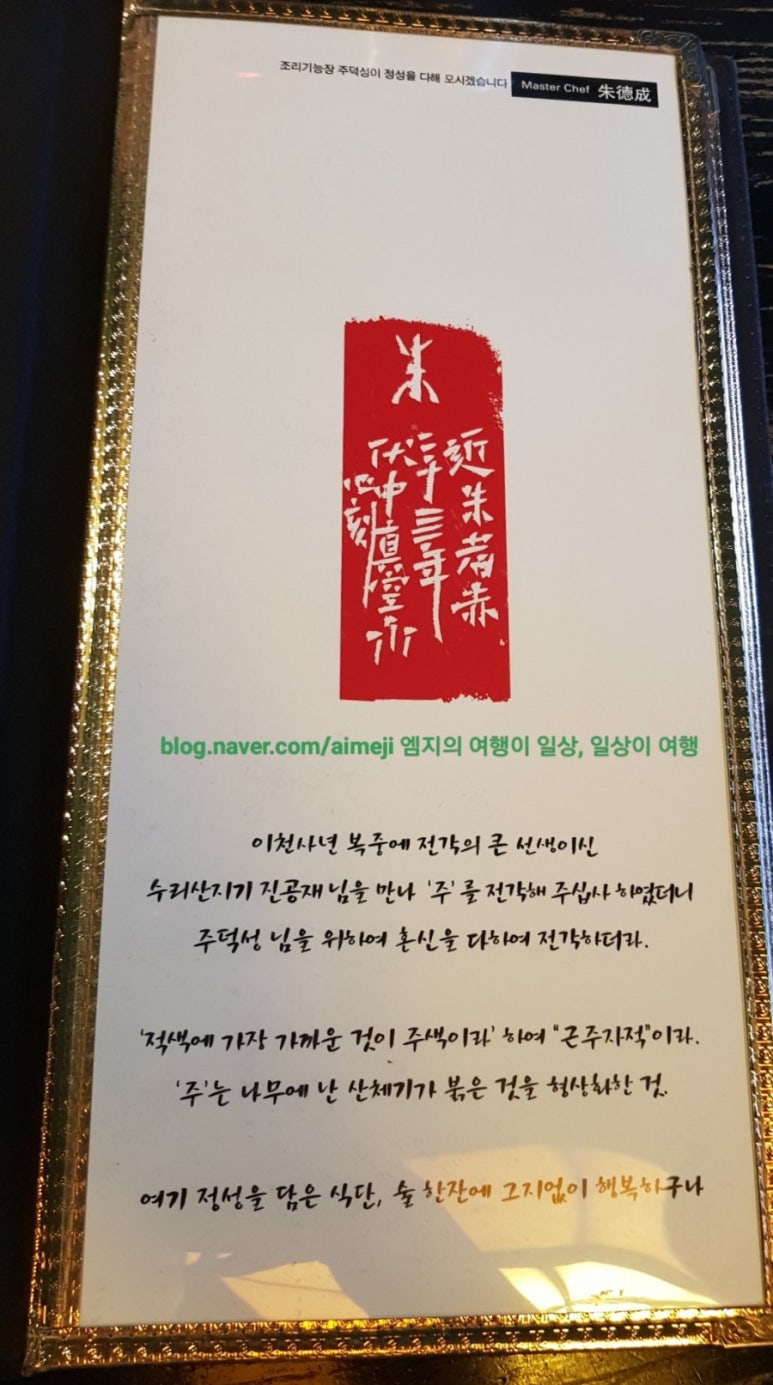 조리기능장 주덕성이 정성을 다해 모시겠습니다 Master Chef 朱德成
朱
近朱者赤
二千三年
伏中真空
心刻
blog.naver.com/aimeji 엠지의 여행이 일상, 일상이 여행
이천사년 복중에 전각의 큰 선생이신
수리산지기 진공재 님을 만나 '주'를 전각해 주십사 하였더니
주덕성 님을 위하여 혼신을 다하여 전각하더라.
'적색에 가장 가까운 것이 주색이라' 하여 "근주자적"이라.
'주'는 나무에 난 산체기가 붉은 것을 형상화한 것.
여기 정성을 담은 식단, 술 한잔에 그지없이 행복하구나